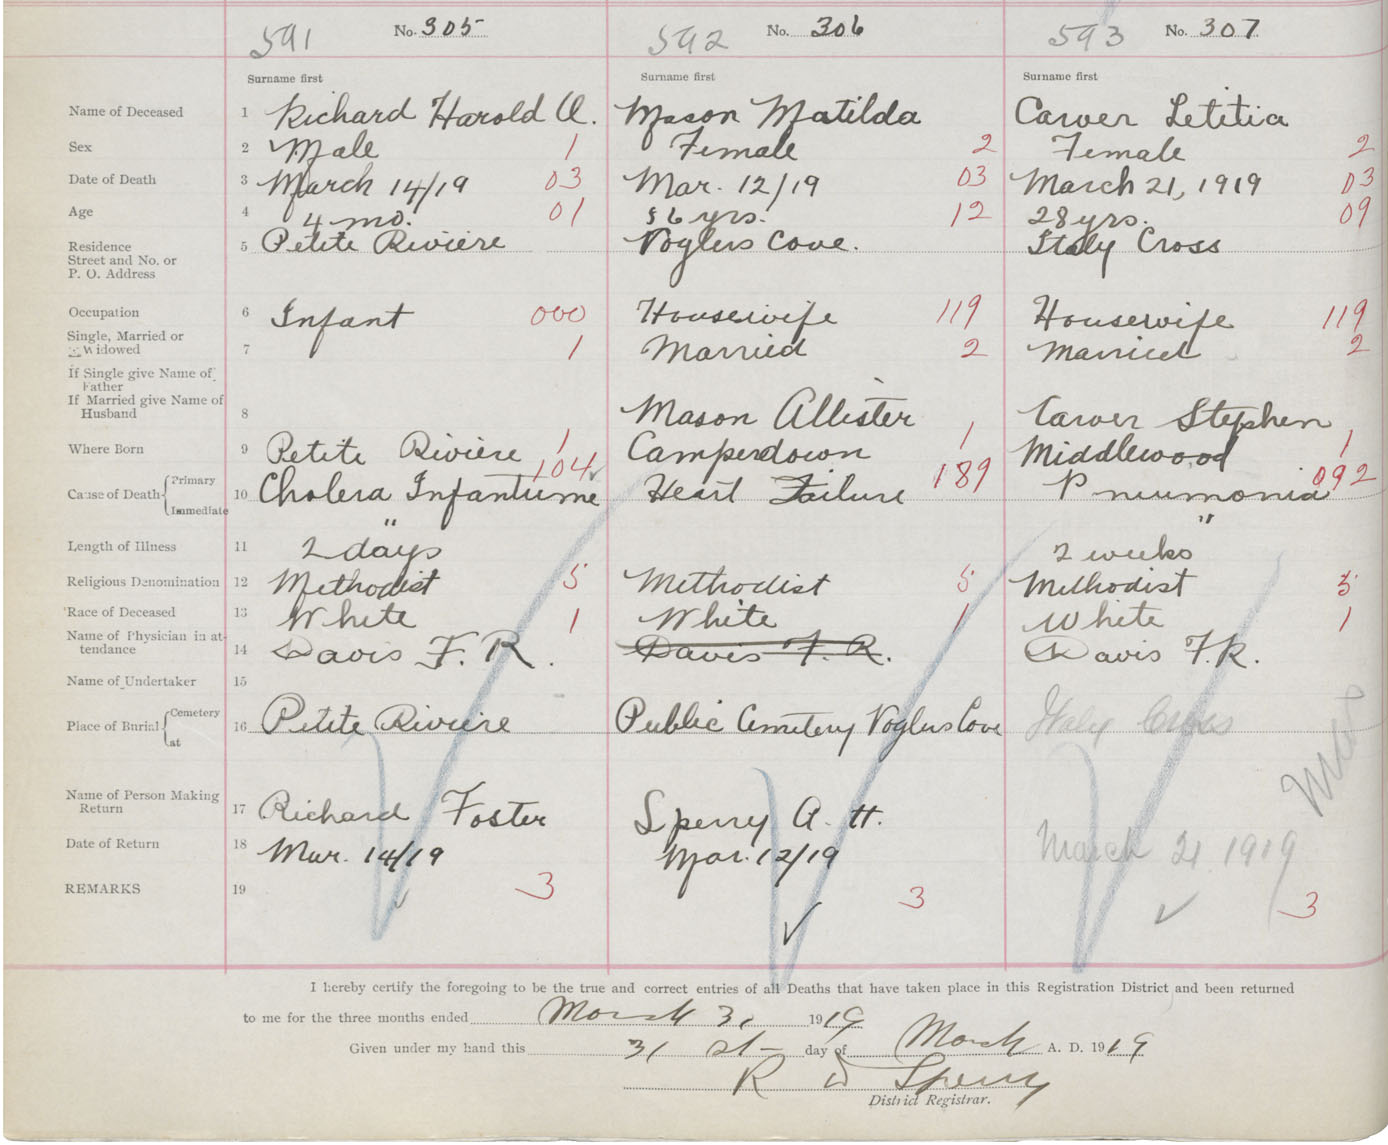 591 No. 305 592 No. 306 593 No. 307
Surname first Surname first Surname first
Name of Deceased 1 Richard Harold A. Mason Matilda Carver Letitia
Sex 2 Male 1 Female 2 Female 2
Date of Death 3 March 14/19 03 Mar. 12/19 03 March 21, 1919 03
Age 4 4 mo. 01 56 yrs. 12 28 yrs. 09
Residence 5 Petite Riviere Voglers Cove. Italy Cross
Street and No. or
P. O. Address
Occupation 6 Infant 000 Housewife 119 Housewife 119
Single, Married or
Widowed 7 1 Married 2 Married 2
If Single give Name of
Father
If Married give Name of
Husband 8 Mason Allister Carver Stephen
Where Born 9 Petite Riviere 1 Camperdown 1 Middlewood 1
104 189 092
Cause of Death Primary
10 Cholera Infantume Heart Failure Pneumonia
Immediate " "
Length of Illness 11 2 days 2 weeks
Religious Denomination 12 Methodist 5 Methodist 5 Methodist 5
Race of Deceased 13 White 1 White 1 White 1
Name of Physician in at-
tendance 14 Davis F. R. Davis F. R. Davis F. R.
Name of Undertaker 15
Place of Burial Cemetery
16 Petite Riviere Public Cemetery Voglers Cove Italy Cross
at
Name of Person Making
Return 17 Richard Foster Sperry A. H.
Date of Return 18 Mar. 14/19 Mar. 12/19 March 21 1919
REMARKS 19 3 3 3
I hereby certify the foregoing to be the true and correct entries of all Deaths that have taken place in this Registration District and been returned
to me for the three months ended March 31 1919
Given under my hand this 31 st day of March A. D. 1919
R W Sperry
District Registrar.